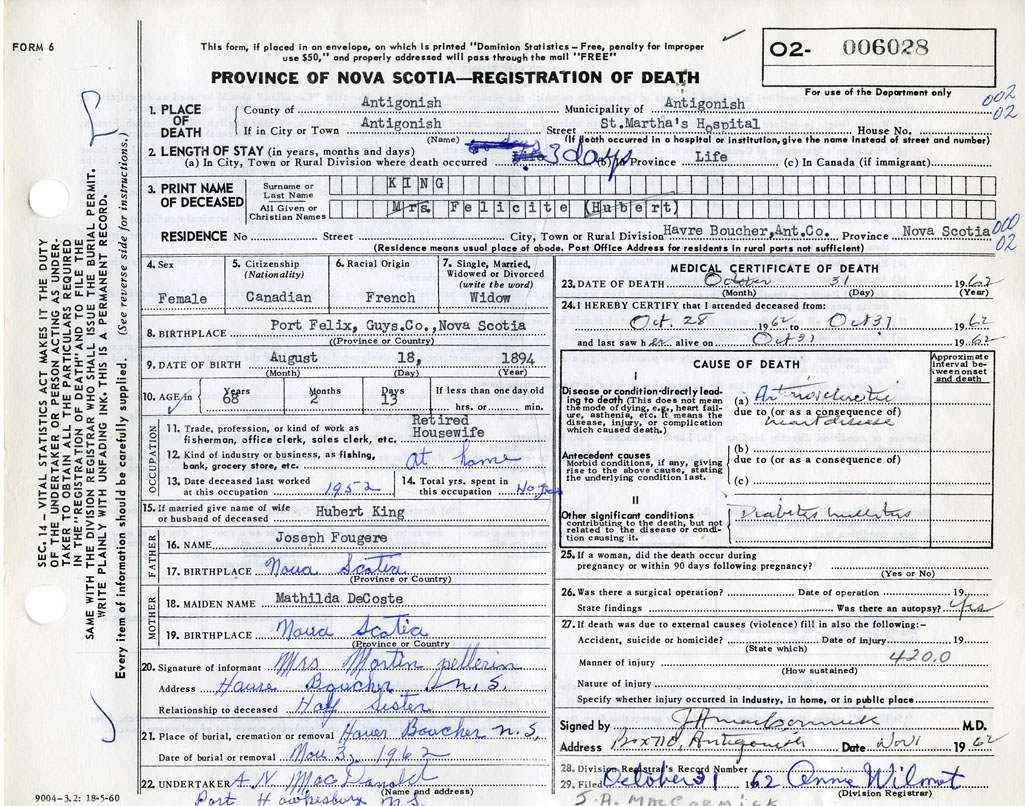 FORM 6
This form, if placed in an envelope, on which is printed "Dominion Statistics – Free, penalty for improper
use $50," and properly addressed will pass through the mail "FREE"
PROVINCE OF NOVA SCOTIA—REGISTRATION OF DEATH
O2- 006028
For use of the Department only
002
02
1. PLACE OF DEATH
County of Antigonish Municipality of Antigonish
If in City or Town Antigonish Street St.Martha's Hospital House No.
(Name) (If death occurred in a hospital or institution, give the name instead of street and number)
2. LENGTH OF STAY (in years, months and days)
(a) In City, Town or Rural Division where death occurred 3 days (b) In Province Life (c) In Canada (if immigrant)
3. PRINT NAME OF DECEASED
Surname or Last Name KING
All Given or Christian Names Mrs. Felicite (Hubert)
RESIDENCE No Street City, Town or Rural Division Havre Boucher,Ant.Co. Province Nova Scotia
000
02
(Residence means usual place of abode. Post Office Address for residents in rural parts not sufficient)
4. Sex Female
5. Citizenship (Nationality) Canadian
6. Racial Origin French
7. Single, Married, Widowed or Divorced (write the word) Widow
8. BIRTHPLACE Port Felix, Guys.Co.,Nova Scotia
((Province or Country)
9. DATE OF BIRTH August 18, 1894
(Month) (Day) (Year)
10. AGE in Years 68 Months 2 Days 13 If less than one day old
hrs. or min.
OCCUPATION
11. Trade, profession, or kind of work as fisherman, office clerk, sales clerk, etc. Retired Housewife
12. Kind of industry or business, as fishing, bank, grocery store, etc. at home
13. Date deceased last worked at this occupation 1952
14. Total yrs. spent in this occupation 40 yrs
15. If married give name of wife or husband of deceased Hubert King
FATHER
16. NAME Joseph Fougere
17. BIRTHPLACE Nova Scotia
(Province or Country)
MOTHER
18. MAIDEN NAME Mathilda DeCoste
19. BIRTHPLACE Nova Scotia
(Province or Country)
20. Signature of informant Mrs Martin pellerin
Address Havre Boucher N.S.
Relationship to deceased Half Sister
21. Place of burial, cremation or removal Haver Boucher N.S.
Date of burial or removal Nov 3, 1962
22. UNDERTAKER A N MacDonald
(Name and address)
Port Hawkesbury N.S.
9004-3.2: 18-5-60
MEDICAL CERTIFICATE OF DEATH
23. DATE OF DEATH October 31 1962
(Month) (Day) (Year)
24. I HEREBY CERTIFY that I attended deceased from:
Oct. 28 1962 to Oct 31 1962
and last saw her alive on Oct 31 1962
CAUSE OF DEATH
Approximate interval between onset and death
I
Disease or condition directly leading to death (This does not mean the mode of dying, e.g., heart failure, asthenia, etc. It means the disease, injury, or complication which caused death.)
(a) Arteriosclerotic
due to (or as a consequence of)
heart disease
Antecedent causes
Morbid conditions, if any, giving rise to the above cause, stating the underlying condition last.
(b)
due to (or as a consequence of)
(c)
II
Other significant conditions
contributing to the death, but not related to the disease or condition causing it.
Diabetes mellitus
25. If a woman, did the death occur during
pregnancy or within 90 days following pregnancy?
(Yes or No)
26. Was there a surgical operation? Date of operation 19
State findings Was there an autopsy? Yes
27. If death was due to external causes (violence) fill in also the following:-
Accident, suicide or homicide? Date of injury 19
(State which)
Manner of injury 420.0
(How sustained)
Nature of injury
Specify whether injury occurred in industry, in home, or in public place
Signed by J A MacCormick M.D.
Address Box 710, Antigonish Date Nov 1 1962
28. Division Registrar's Record Number
29. Filed October 31 1962 Anne Wilmot
(Division Registrar)
J.A. MACCORMICK
SEC. 14 – VITAL STATISTICS ACT MAKES IT THE DUTY
OF THE UNDERTAKER OR PERSON ACTING AS UNDER-
TAKER TO OBTAIN ALL THE PARTICULARS REQUIRED
IN THE "REGISTRATION OF DEATH" AND TO FILE THE
SAME WITH THE DIVISION REGISTRAR WHO SHALL ISSUE THE BURIAL PERMIT.
WRITE PLAINLY WITH UNFADING INK. THIS IS A PERMANENT RECORD.
Every item of information should be carefully supplied. (See reverse side for instructions.)